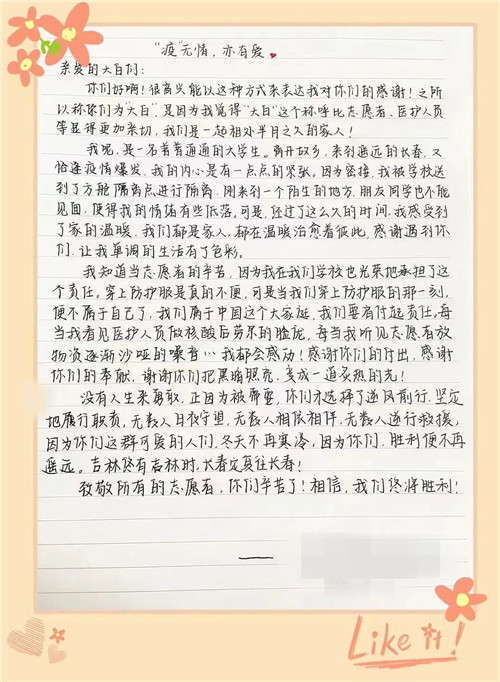 “疫”无情，亦有爱
亲爱的大白们：
你们好啊！很高兴能以这种方式来表达我对你们的感谢！之所
以称你们为“大白”是因为我觉得“大白”这个称呼比志愿者、医护人员
等显得更加亲切，我们是一起相处半月之久的家人！
我呢，是一名普普通通的大学生。离开故乡，来到遥远的长春，又
恰逢疫情爆发，我的内心是有一点点的紧张。因为密接，我被学校送
到了方舱隔离点进行隔离，刚来到一个陌生的地方，朋友同学也不能
见面，使得我的情绪有些低落，可是，经过了这么久的时间，我感受到
了家的温暖，我们都是家人，都在温暖治愈着彼此，感谢遇到你
们，让我单调的生活有了色彩。
我知道当志愿者的辛苦，因为我在我们学校也光荣地承担了这
个责任。穿上防护服是真的不便，可是当我们穿上防护服的那一刻，
便不属于自己了，我们属于中国这个大家庭，我们要有付起责任，每
当我看见医护人员做核酸后劳累的脸庞，每当我听见志愿者放
物资逐渐沙哑的嗓音…我都会感动！感谢你们的付出，感谢
你们的奉献，谢谢你们把黑暗照亮，变成一道炙热的光！
没有人生来勇敢，正因为被需要，你们才选择了逆风前行，坚定
地履行职责，无数人日夜守望，无数人相依相伴，无数人逆行救援，
因为你们这群可爱的人们，冬天不再寒冷，因为你们，胜利便不再
遥远。吉林终有吉林时，长春定复往长春！
致敬所有的志愿者，你们辛苦了！相信，我们终将胜利！
Like it!